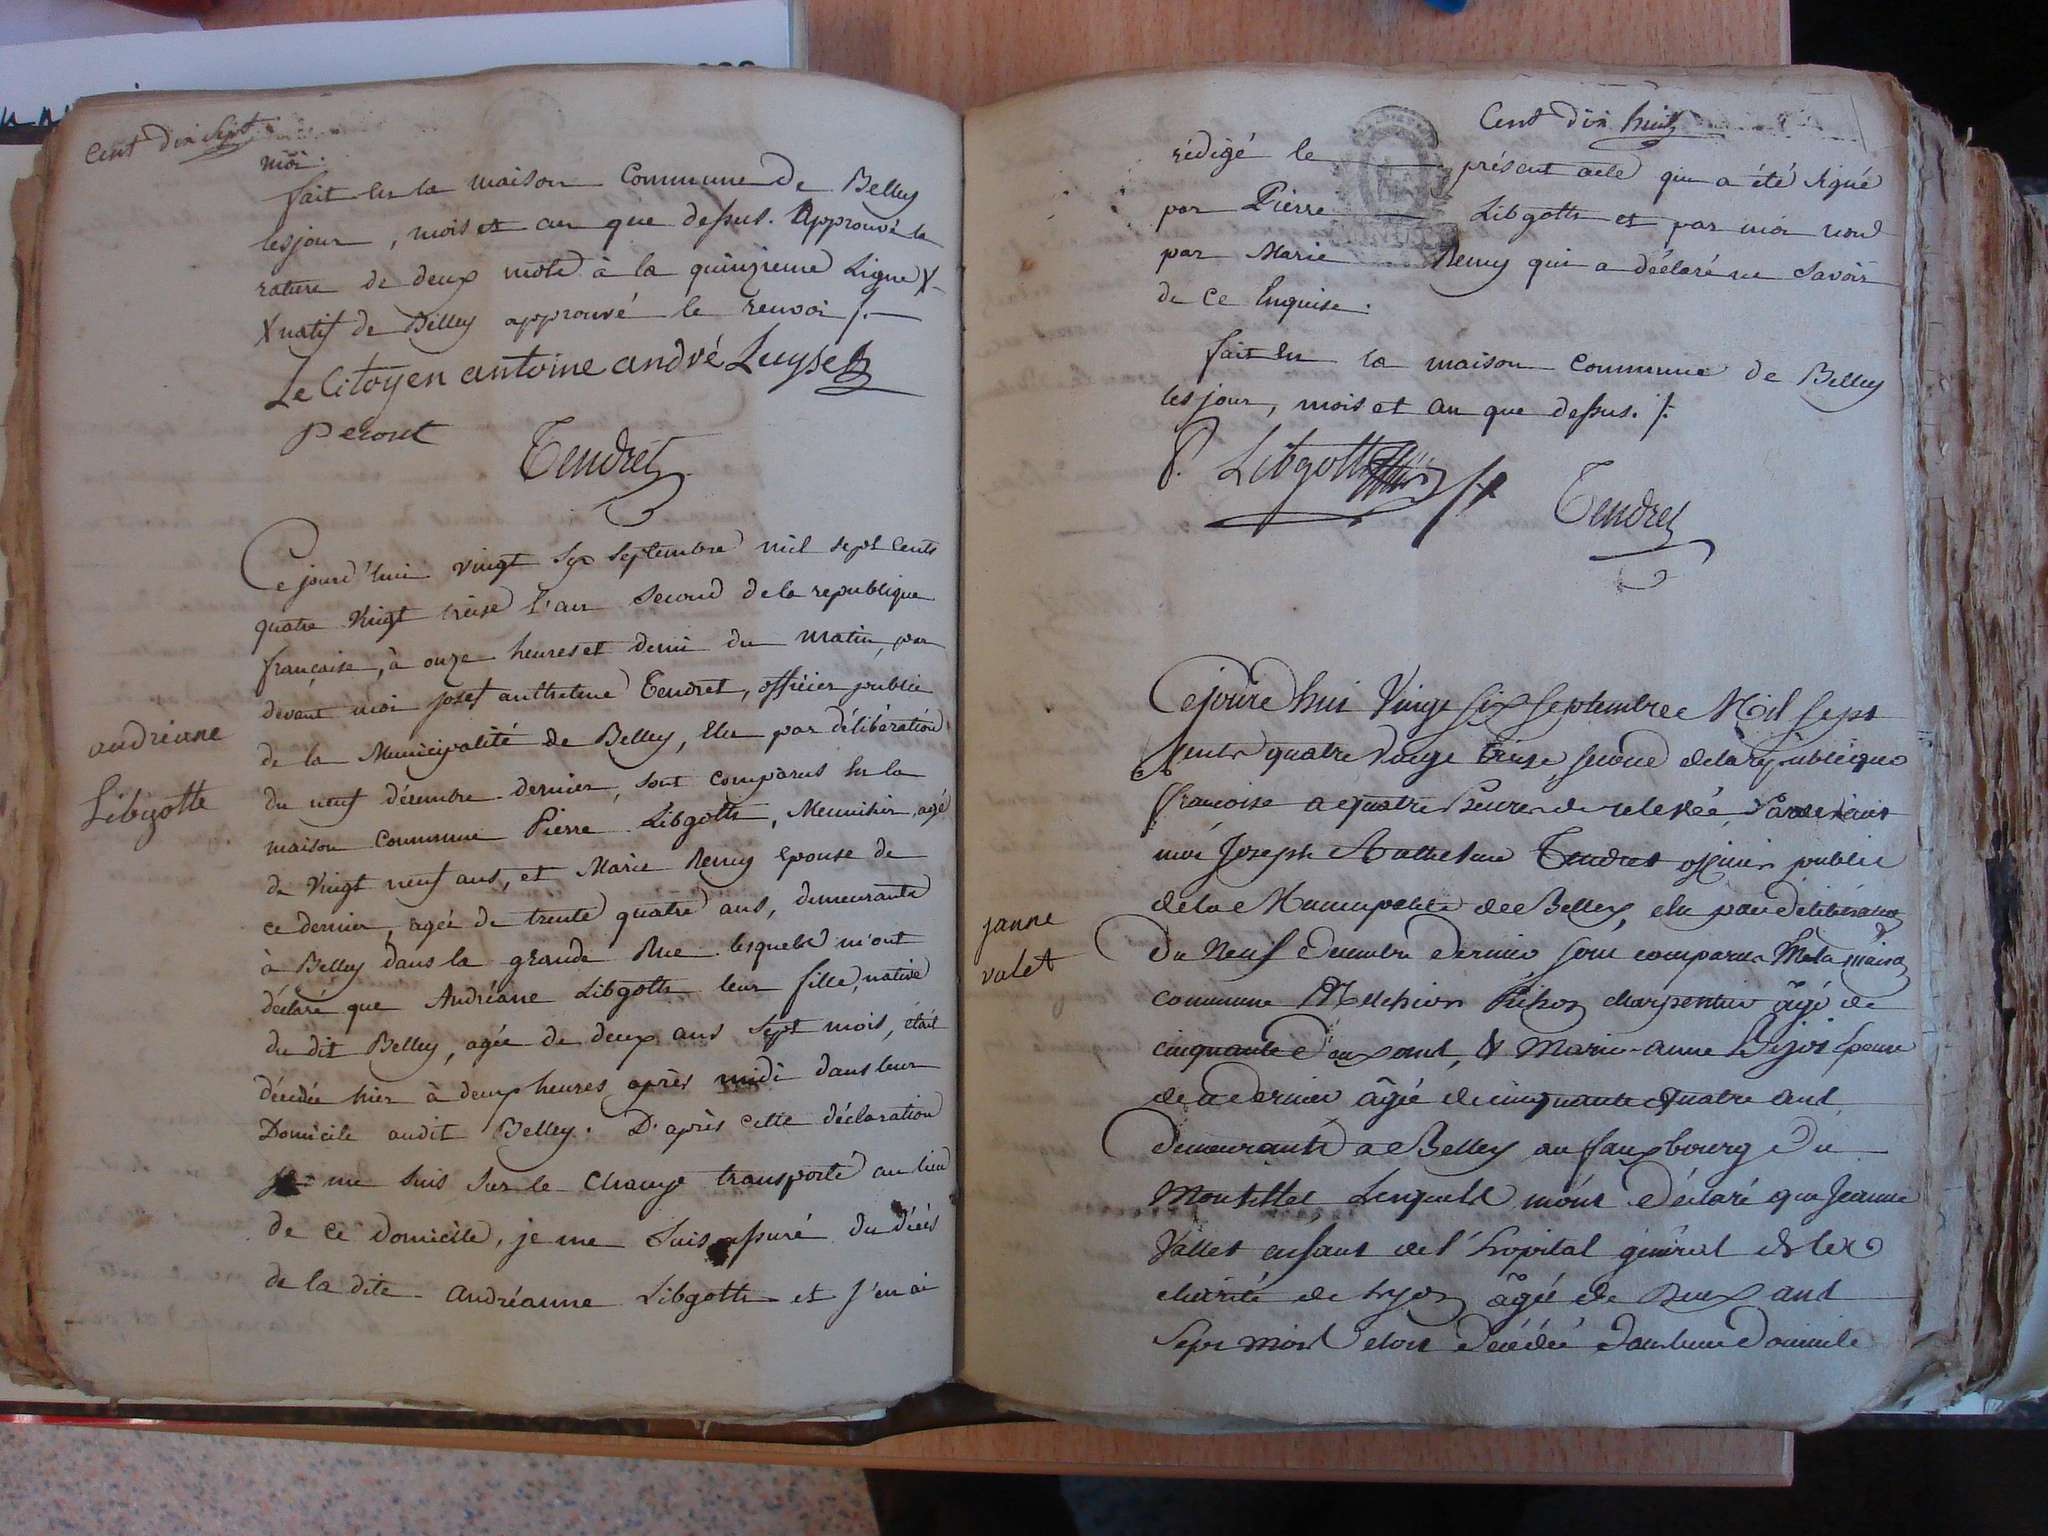 Cent dix sept
moi.
fait en la maison Commune de Belley
les jour, mois et an que dessus. Approuvé la
rature de deux mots à la quinzieme Ligne X
X natif de Belley approuvé le renvoi /.
Le Citoyen antoine andré Luyset
peronet
Tendret
Ce jourd'hui vingt six septembre mil sept Cents
quatre Vingt treise l'an Second de la republique
française, à onze heures et demi du matin, par
devant moi josef anthelme Tendret, officier public
de la Municipalité de Belley, Elu par délibération
du neuf décembre dernier, sont comparus En la
maison commune Pierre Libgotth, Meunisier, agé
de Vingt neuf ans, et Marie Remy épouse de
ce dernier, agée de trente quatre ans, demeurants
à Belley dans la grande Rue lesquels m'ont
déclaré que Andréane Libgotth leur fille, native
du dit Belley, agée de deux ans Sept mois, était
décédée hier à deux heures après midi dans leur
Domicile audit Belley. D'après cette déclaration
je me suis sur le Champ transporté au lieu
de ce domicile, je me suis assuré du décès
de la dite Andréanne Libgotth et j'en ai
andréane
Libgotte
Cent dix huit
rédigé le présent acte qui a été signé
par Pierre Libgotth et par moi non
par Marie Remy qui a déclaré ne savoir
de ce Enquise.
fait En la maison commune de Belley
les jour, mois et an que dessus. /.
P. Libgotth
Tendret
Cejourd hui Vingt Six Septembre Mil Sept
Cents quatre Vingt treise, second de la republique
françoise a quatre heures de relevée, Pardevant
moi Joseph Anthelme Tendret officier public
de la Municipalité de Belley, elu par deliberation
Du Neuf decembre dernier sont comparus En la maison
commune Melchior Pichoz charpentier âgé de
cinquante deux ans, & Marie-anne Bijot Epouse
de ce dernier âgée de cinquante quatre ans
Demeurants a Belley au fauxbourg du
Montillet, Lesquels m'ont déclaré que Jeanne
Vallet enfant de l'hopital général de la
charité de Lyon âgée de Deux ans
Sept mois etoit décédée dans leur Domicile
janne
valet